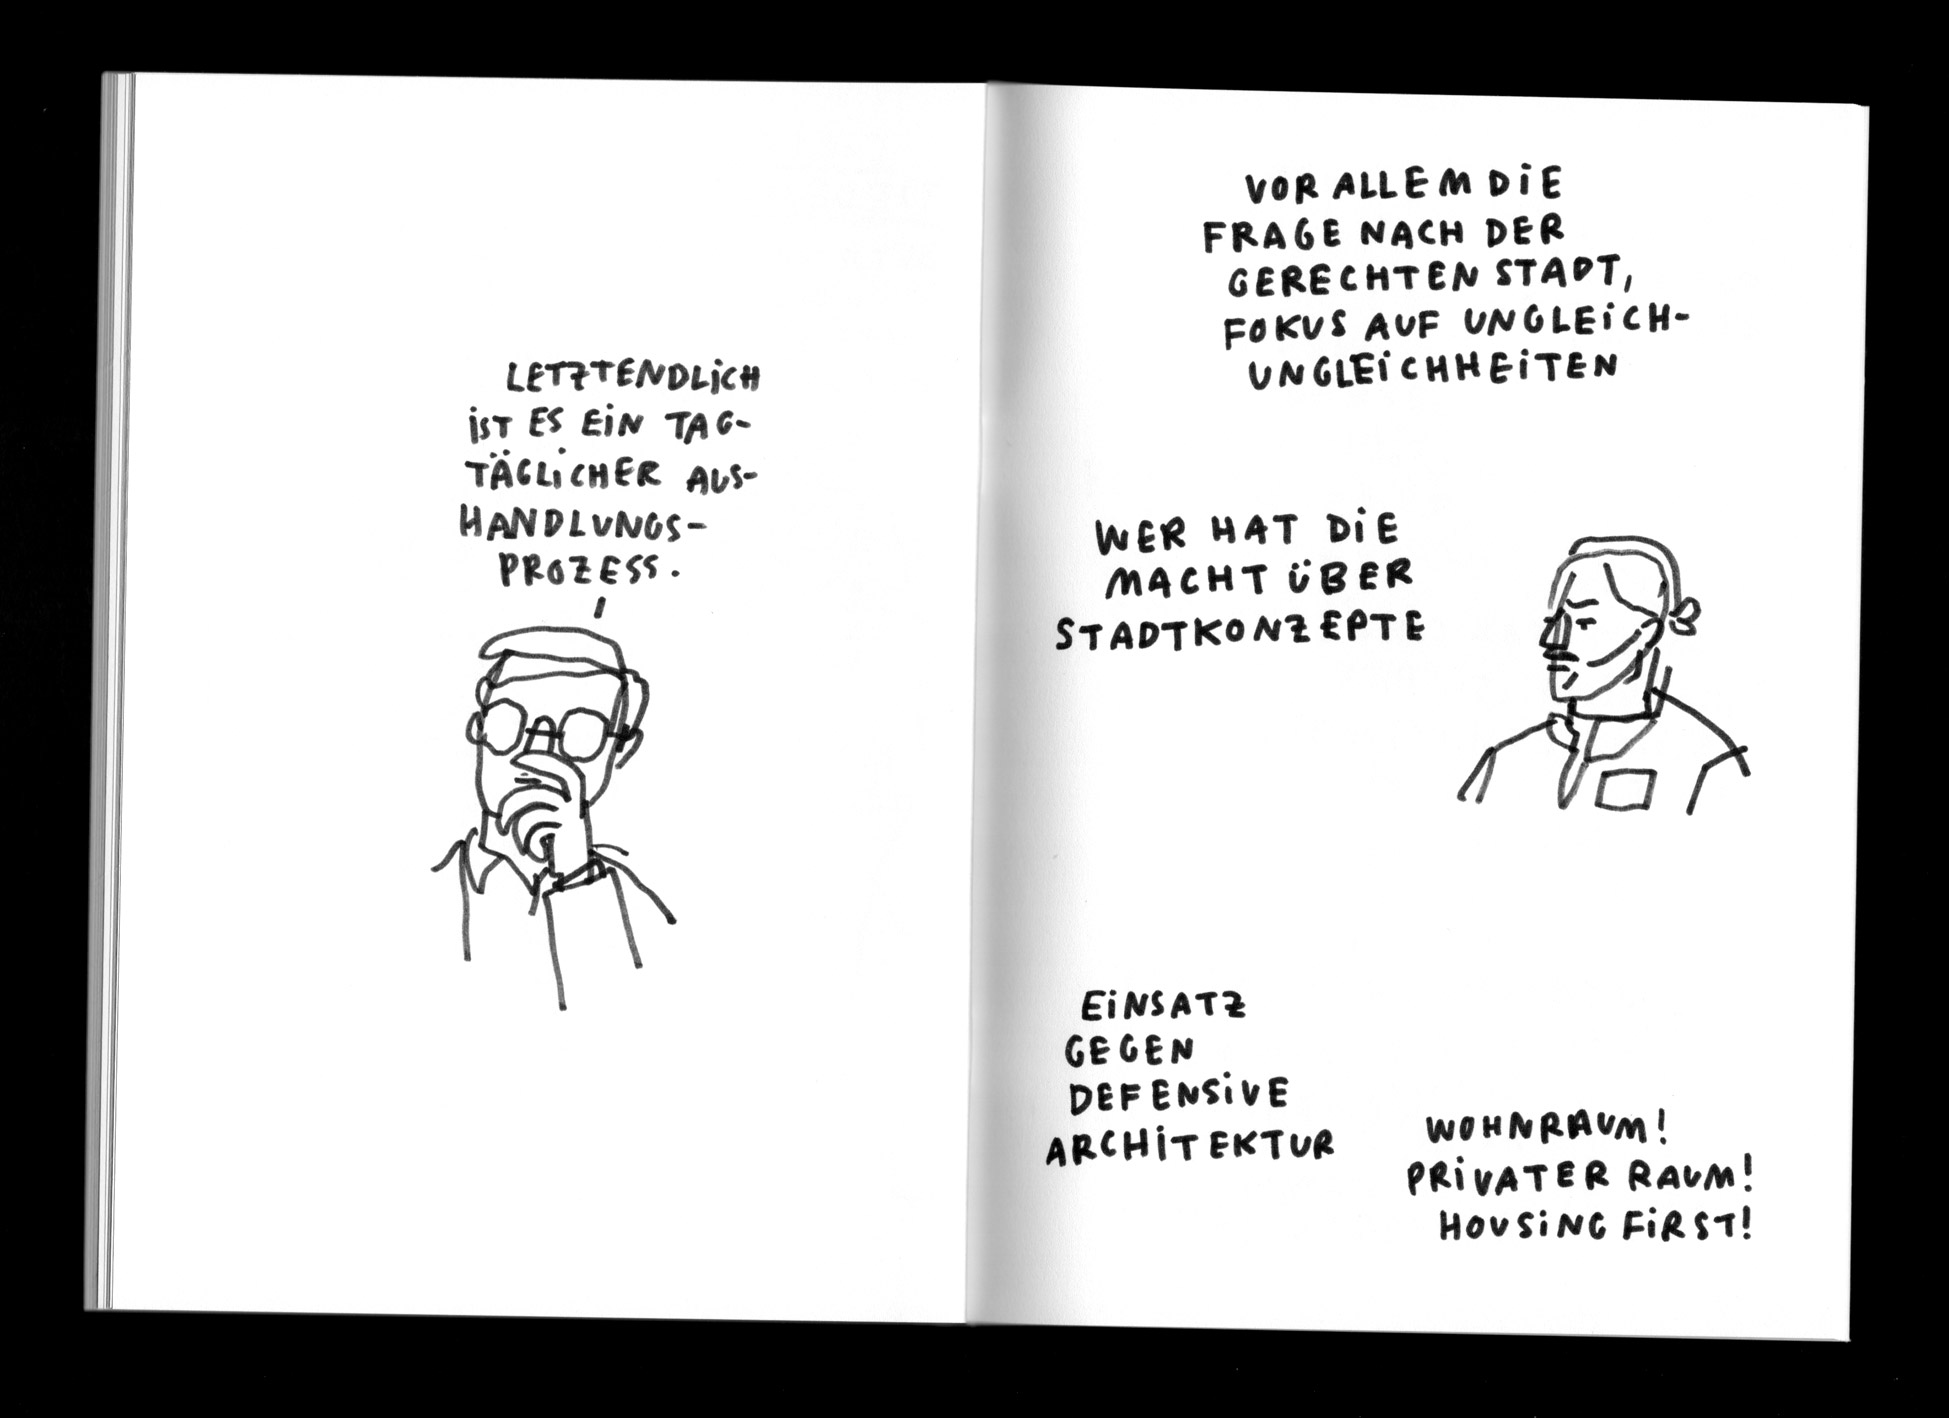 LETZTENDLiCH
iST ES EiN TAG-
TÄGLiCHER AUS-
HANDLUNGS-
PROZESS.
VOR ALLEM DiE
FRAGE NACH DER
GERECHTEN STADT,
FOKUS AUF UNGLEiCH-
UNGLEiCHHEiTEN
WER HAT DiE
MACHT ÜBER
STADTKONZEPTE
EiNSATZ
GEGEN
DEFENSiVE
ARCHiTEKTUR
WOHNRAUM!
PRiVATER RAUM!
HOUSiNG FiRST!